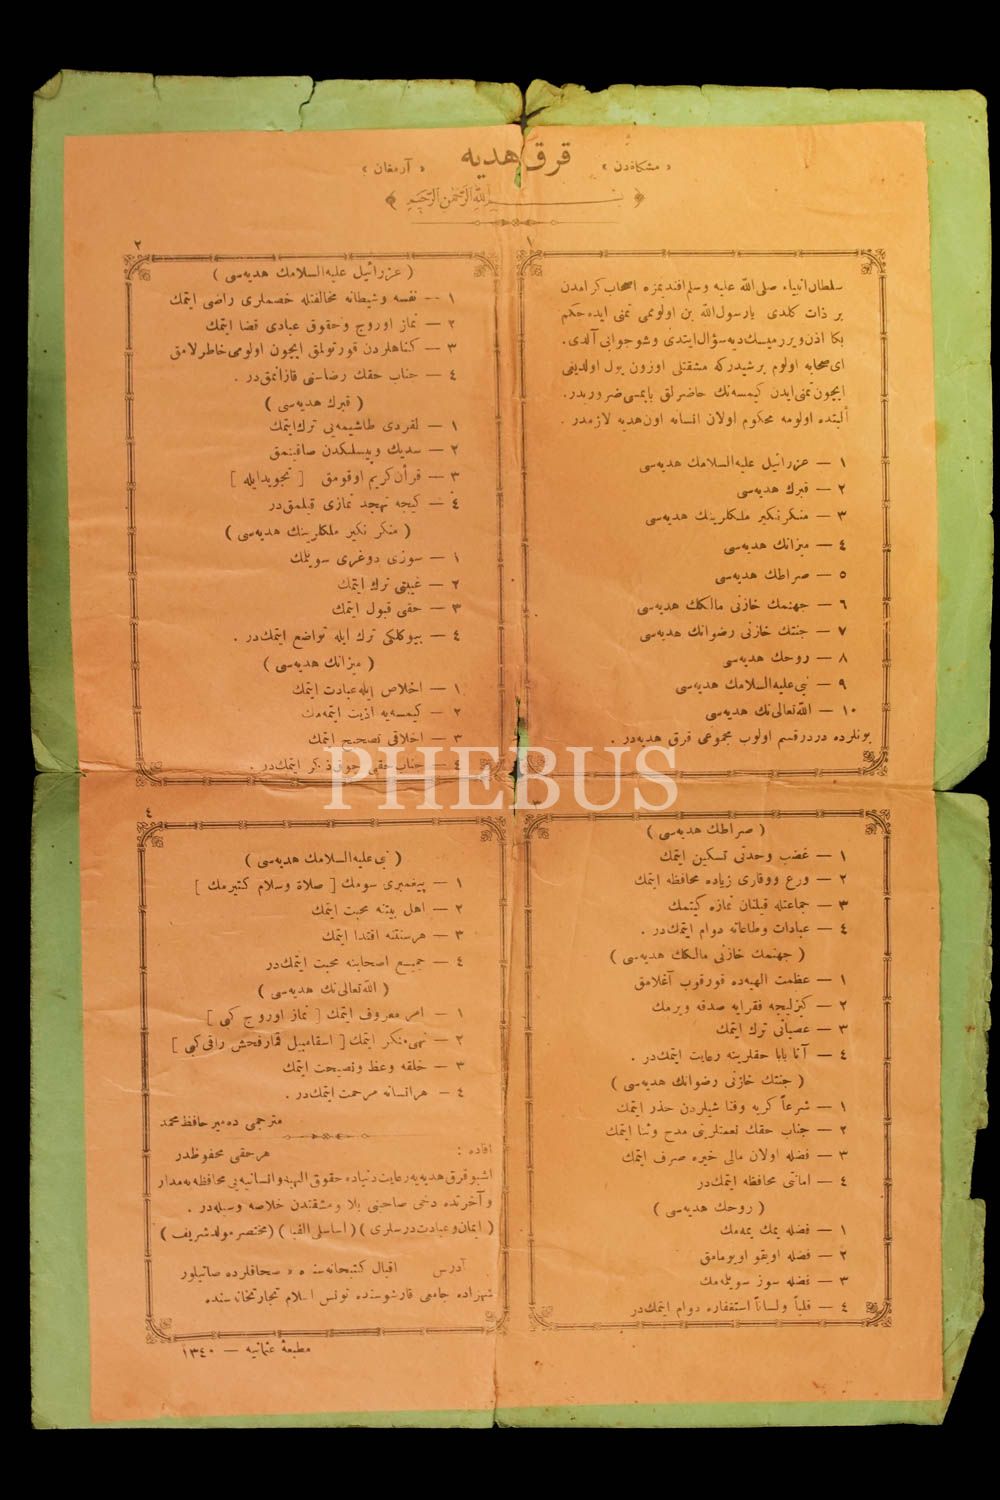 « مشكاةدن » قرق هديه « آرمغان »
﴿ بسم الله الرحمن الرحيم ﴾
١
سلطان انبياء صلى الله عليه وسلم افنديمزه اصحاب كرامدن
بر ذات كلدى يارسول الله بن اولومى تمنى ايده‌جكم
بكا اذن ويررميسك ديه سؤال ايتدى وشو جوابى آلدى.
اى صحابه اولوم برشيدركه مشقتلى اوزون يول اولديغى
ايچون تمنى ايدن كيمسه‌نك حاضرلق يابمسى ضروريدر.
ألبتده اولومه محكوم اولان انسانه اون هديه لازمدر .
١ — عزرائيل عليه السلامك هديه‌سى
٢ — قبرك هديه‌سى
٣ — منكر نكير ملكلرينك هديه‌سى
٤ — ميزانك هديه‌سى
٥ — صراطك هديه‌سى
٦ — جهنمك خازنى مالكك هديه‌سى
٧ — جنتك خازنى رضوانك هديه‌سى
٨ — روحك هديه‌سى
٩ — نبى عليه السلامك هديه‌سى
١٠ — الله تعالى نك هديه‌سى
بونلرده دردر قسم اولوب مجموعى قرق هديه‌در .
٢
( عزرائيل عليه السلامك هديه‌سى )
١ — نفسه وشيطانه مخالفتله خصملرى راضى ايتمك
٢ — نماز اوروج وحقوق عبادى قضا ايتمك
٣ — كناهلردن قورتولمق ايچون اولومى خاطرلامق
٤ — جناب حقك رضاسنى قازانمق‌در .
( قبرك هديه‌سى )
١ — لقردى طاشيمه‌يى ترك ايتمك
٢ — سديك وپيسلكدن صاقينمق
٣ — قرأن كريم اوقومق [ تجويد ايله ]
٤ — كيجه تهجد نمازى قيلمق‌در
( منكر نكير ملكلرينك هديه‌سى )
١ — سوزى دوغرى سويلمك
٢ — غيبتى ترك ايتمك
٣ — حقى قبول ايتمك
٤ — بيوكلكى ترك ايله تواضع ايتمك‌در .
( ميزانك هديه‌سى )
١ — اخلاص ايله عبادت ايتمك
٢ — كيمسه‌يه اذيت ايتمه‌مك
٣ — اخلاقى تصحيح ايتمك
٤ — جناب حقى چوق ذكر ايتمك‌در .
PHEBUS
٣
( صراطك هديه‌سى )
١ — غضب وحدتى تسكين ايتمك
٢ — ورع ووقارى زياده محافظه ايتمك
٣ — جماعتله قيلنان نمازه كيتمك
٤ — عبادات وطاعاته دوام ايتمك‌در .
( جهنمك خازنى مالكك هديه‌سى )
١ — عظمت الهيه‌ده قورقوب آغلامق
٢ — كيزليجه فقرايه صدقه ويرمك
٣ — عصيانى ترك ايتمك
٤ — آنا بابا حقلرينه رعايت ايتمك‌در .
( جنتك خازنى رضوانك هديه‌سى )
١ — شرعاً كريه وفنا شيلردن حذر ايتمك
٢ — جناب حقك نعمتلرينى مدح وثنا ايتمك
٣ — فضله اولان مالى خيره صرف ايتمك
٤ — امانتى محافظه ايتمك‌در
( روحك هديه‌سى )
١ — فضله يمك يمه‌مك
٢ — فضله اويقو اويومامق
٣ — فضله سوز سويلمه‌مك
٤ — قلباً ولساناً استغفاره دوام ايتمك‌در
٤
( نبى عليه السلامك هديه‌سى )
١ — پيغمبرى سومك [ صلاة وسلام كتيرمك ]
٢ — اهل بيتنه محبت ايتمك
٣ — هرسنتنه اقتدا ايتمك
٤ — جميع اصحابنه محبت ايتمك‌در
( الله تعالى نك هديه‌سى )
١ — امر معروف ايتمك [ نماز اوروج كبى ]
٢ — نهى منكر ايتمك [ اسقامبيل قمار فحش راقى كبى ]
٣ — خلقه وعظ ونصيحت ايتمك
٤ — هر انسانه مرحمت ايتمك‌در .
مترجمى ده‌مير حافظ محمد
افاده : هر حقى محفوظدر
اشبو قرق هديه‌يه رعايت دنياده حقوق الهيه وانسانيه‌يى محافظه‌يه مدار
وآخرتده دخى صاحبنى بلا ومشقتدن خلاصه وسيله‌در .
( ايمان وعبادت درسلرى ) ( اساسلى الفبا ) ( مختصر مولد شريف )
آدرس اقبال كتبخانه‌سنده و صحافلرده صاتيلور
شهزاده جامعى قارشوسنده تونس اسلام تجارتخانه‌سنده
مطبعۀ عثمانيه — ١٣٤٠